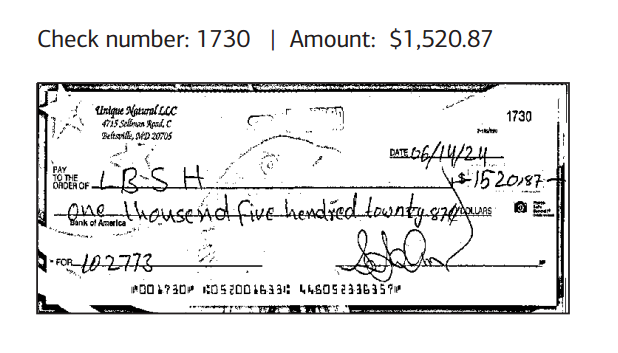 Check number: 1730 | Amount: $1,520.87
Unique Natural LLC
4715 Sellman Road, C
Beltsville, MD 20705
1730
DATE 06/14/24
PAY
TO THE
ORDER OF LBSH
$1520,87
one thousend five hendred townty 87/ DOLLARS
Bank of America
FOR 102773
⑈001730⑈ ⑆052001633⑆ 446052336357⑈